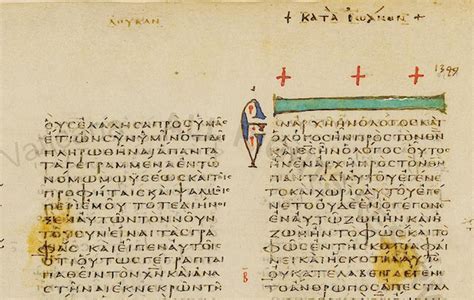 ΛΟΥΚΑΝ
+ ΚΑΤΑ ΙΩΑΝΗΝ +
1349
ΟΥΣΕΛΑΛΗΣΑΠΡΟΣΥΜΑΣ
ΕΤΙΩΝΣΥΝΥΜΙΝΟΤΙΔΕΙ
ΠΛΗΡΩΘΗΝΑΙΠΑΝΤΑ
ΤΑΓΕΓΡΑΜΜΕΝΑΕΝΤΩ
ΝΟΜΩΜΩΥΣΕΩΣΚΑΙΤΟΙΣ
ΠΡΟΦΗΤΑΙΣΚΑΙΨΑΛΜΟΙΣ
ΠΕΡΙΕΜΟΥΤΟΤΕΔΙΗΝΟΙ
ΞΕΝΑΥΤΩΝΤΟΝΝΟΥΝ
ΤΟΥΣΥΝΙΕΝΑΙΤΑΣΓΡΑ
ΦΑΣ ΚΑΙΕΙΠΕΝΑΥΤΟΙΣ
ΟΤΙΟΥΤΩΣΓΕΓΡΑΠΤΑΙ
ΠΑΘΕΙΝΤΟΝΧΝΚΑΙΑΝΑ
ΣΤΗΝΑΙΕΚΝΕΚΡΩΝΤΗ
ΕΝΑΡΧΗΗΝΟΛΟΓΟΣΚΑΙΟ
ΛΟΓΟΣΗΝΠΡΟΣΤΟΝΘΝ
ΚΑΙΘΣΗΝΟΛΟΓΟΣ ΟΥΤΟΣ
ΗΝΕΝΑΡΧΗΠΡΟΣΤΟΝΘΝ
ΠΑΝΤΑΔΙΑΥΤΟΥΕΓΕΝΕ
ΤΟΚΑΙΧΩΡΙΣΑΥΤΟΥΕΓΕ
ΝΕΤΟΟΥΔΕΕΝΟΓΕΓΟΝΕΝ
ΕΝΑΥΤΩΖΩΗΗΝΚΑΙΗΖΩ
ΗΗΝΤΟΦΩΣ ΚΑΙ
ΤΟΦΩΣΕΝΤΗΣΚΟΤΙΑΦΑΙ
ΝΕΙΚΑΙΗΣΚΟΤΙΑΑΥΤΟ
ΟΥΚΑΤΕΛΑΒΕΝ ΕΓΕΝΕ
ΤΟΑΝΘΡΩΠΟΣΑΠΕΣΤΑΛ